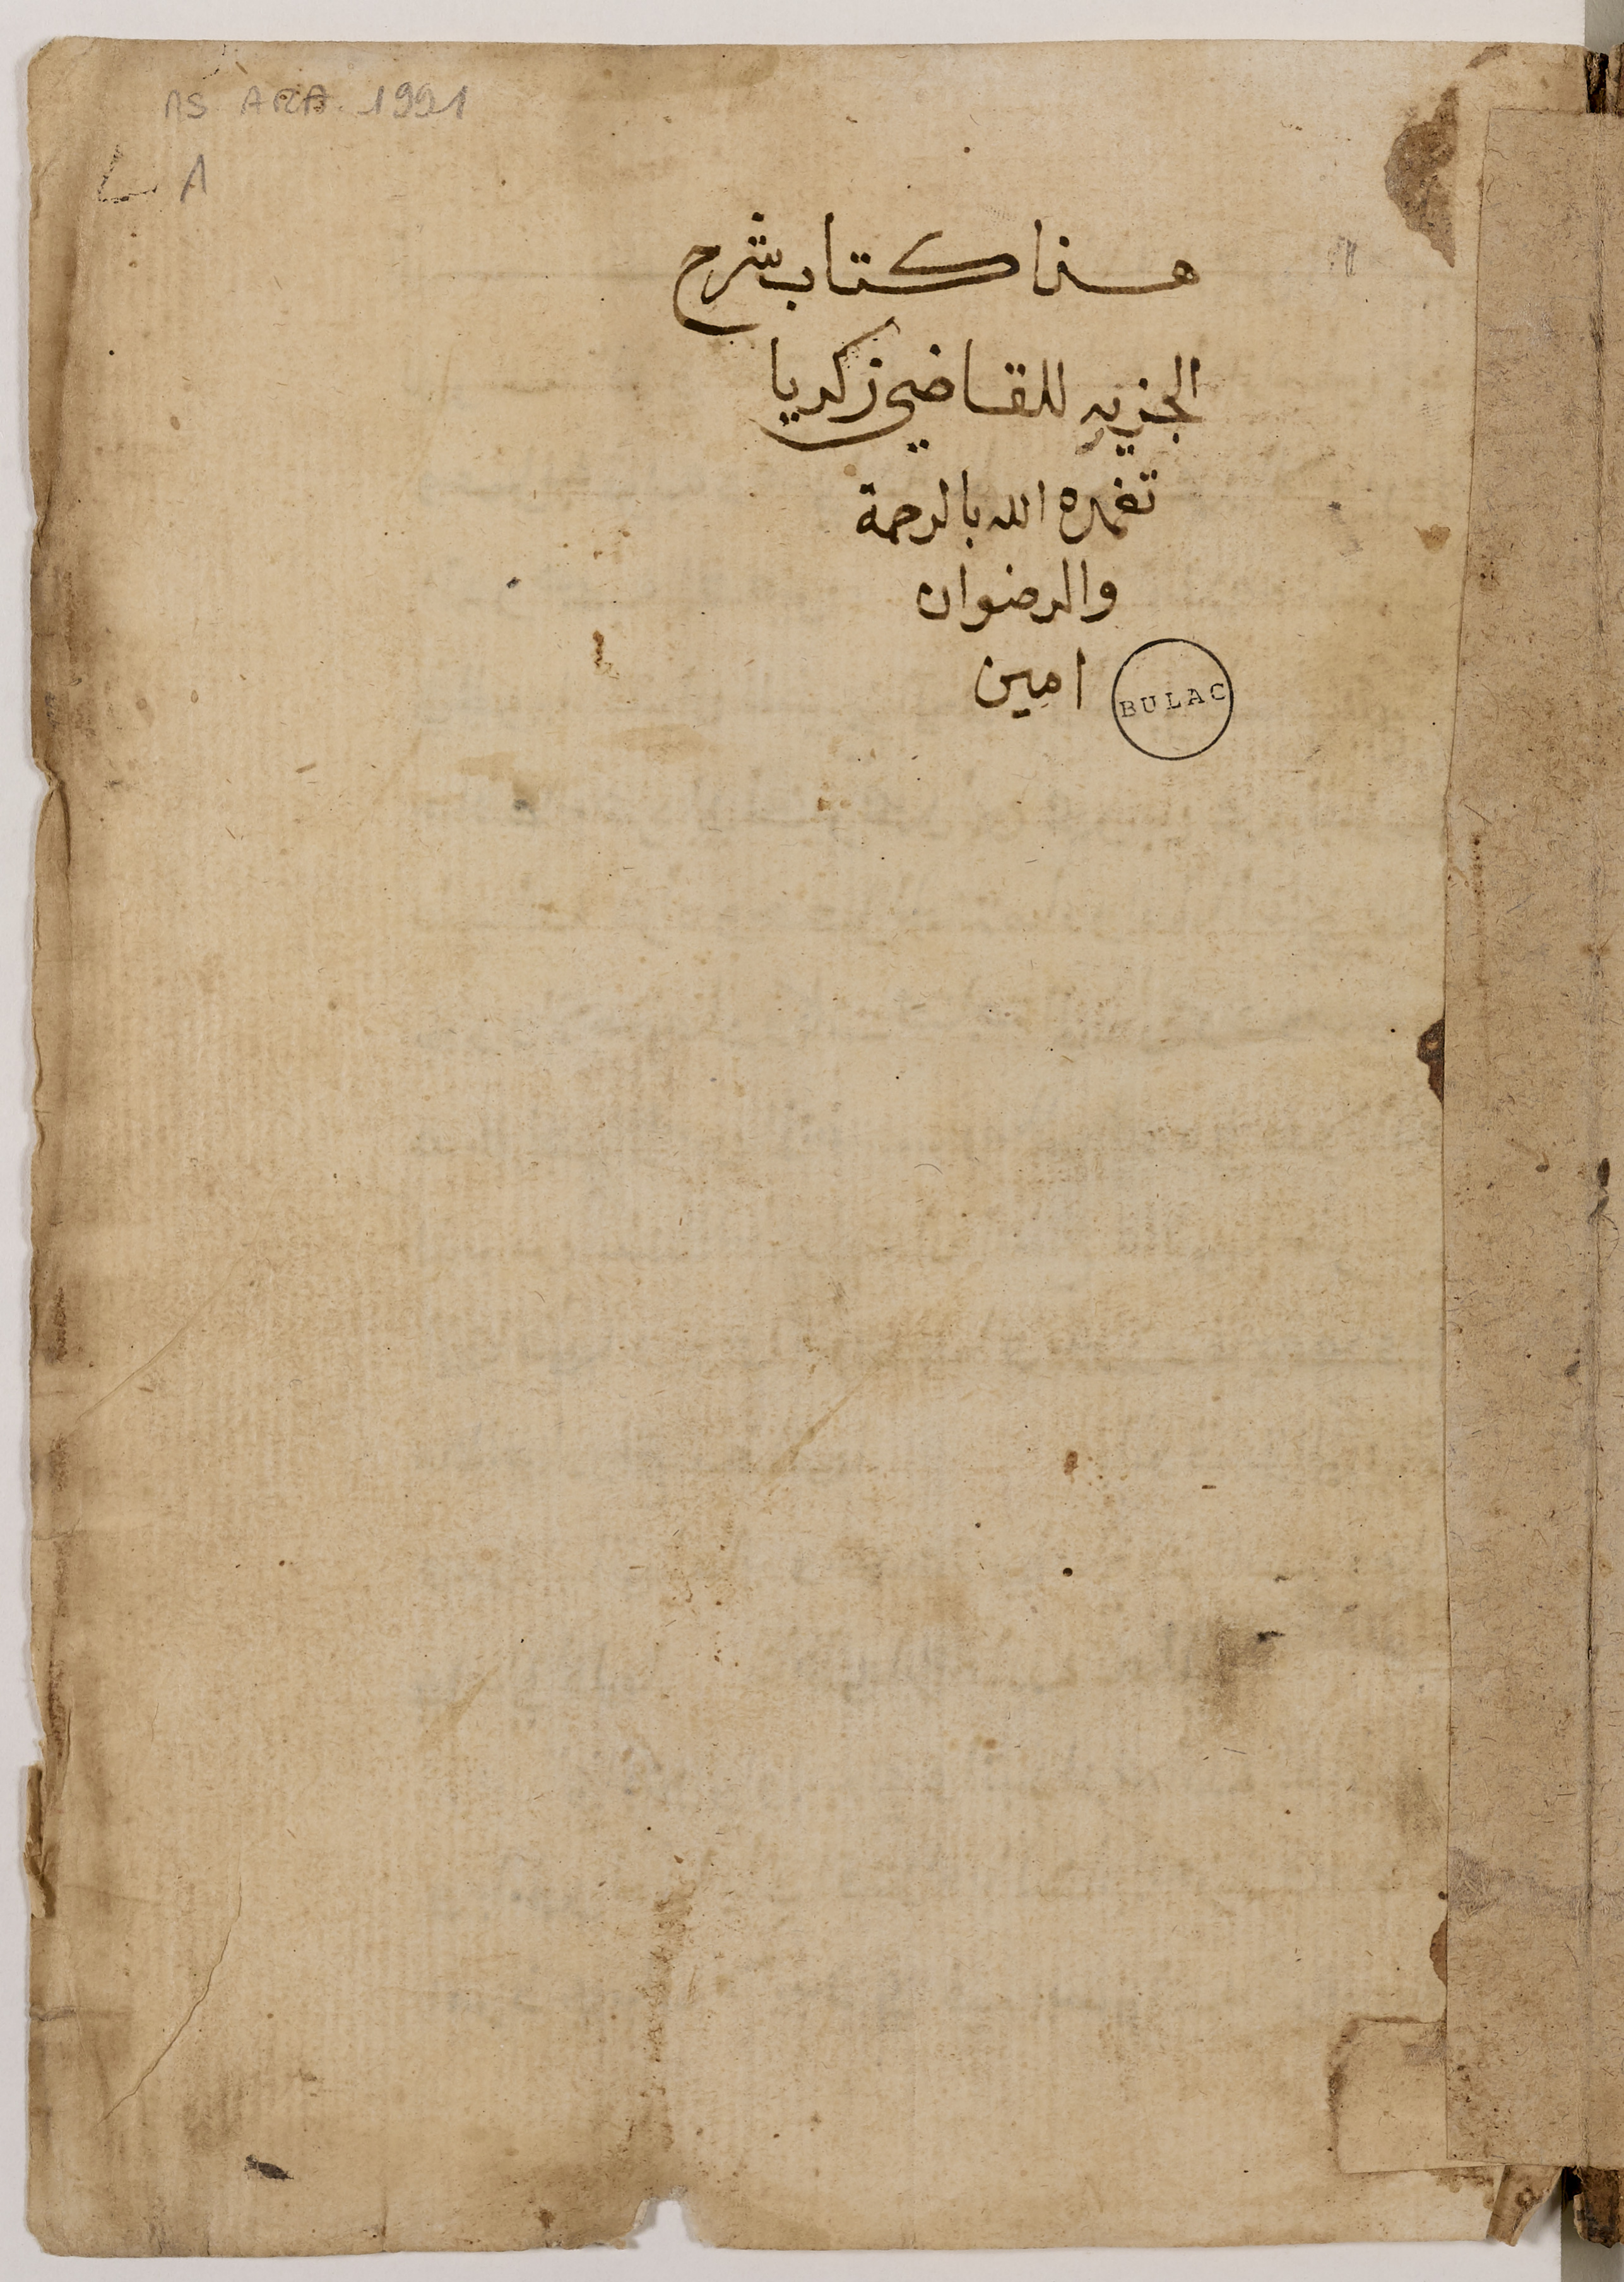 MS ARA. 1991
هذا كتاب شرح
الجزريه للقاضي زكريا
تغمده الله بالرحمة
والرضوان
امين
BULAC